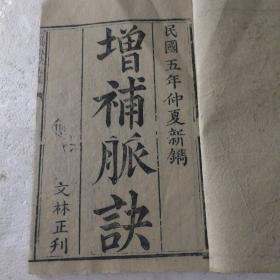 民國五年仲夏新鐫
增補脈訣
文林正刊